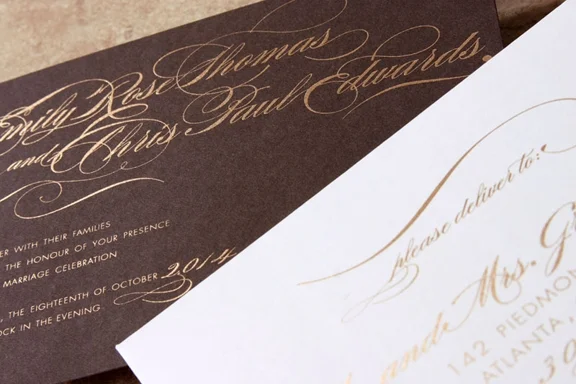 Emily Rose Thomas
and Chris Paul Edwards,
WITH THEIR FAMILIES
THE HONOUR OF YOUR PRESENCE
MARRIAGE CELEBRATION
, THE EIGHTEENTH OF OCTOBER 2014
IN THE EVENING
please deliver to:
and Mrs.
142
ATLANTA,